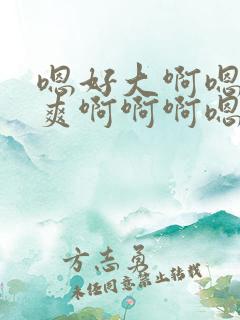 嗯好大啊嗯
爽啊啊啊嗯
方志勇
未经同意禁止转载